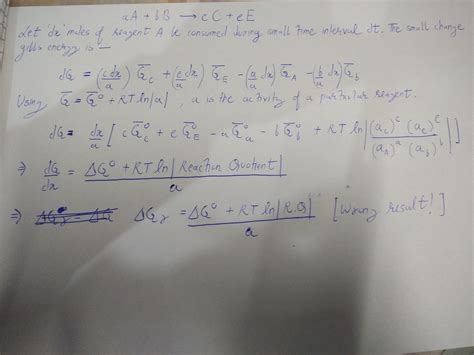 aA + bB → cC + eE
Let 'dx' moles of reagent A be consumed during small time interval dt. The small change
gibbs energy is :-
dG = (c dx/a) G̅_C + (e dx/a) G̅_E - (a/a dx) G̅_A - (b/a dx) G̅_b
Using G̅ = G̅° + RT ln|a| , a is the activity of a particular reagent.
dG = dx/a [ c G̅_C° + e G̅_E° - a G̅_a° - b G̅_b° + RT ln| (a_c)^c (a_e)^e / (a_A)^a (a_b)^b | ]
⇒ dG/dx = ΔG° + RT ln| Reaction Quotient | / a
⇒ ΔG_r = ΔG° + RT ln|R.Q| / a [Wrong result!]